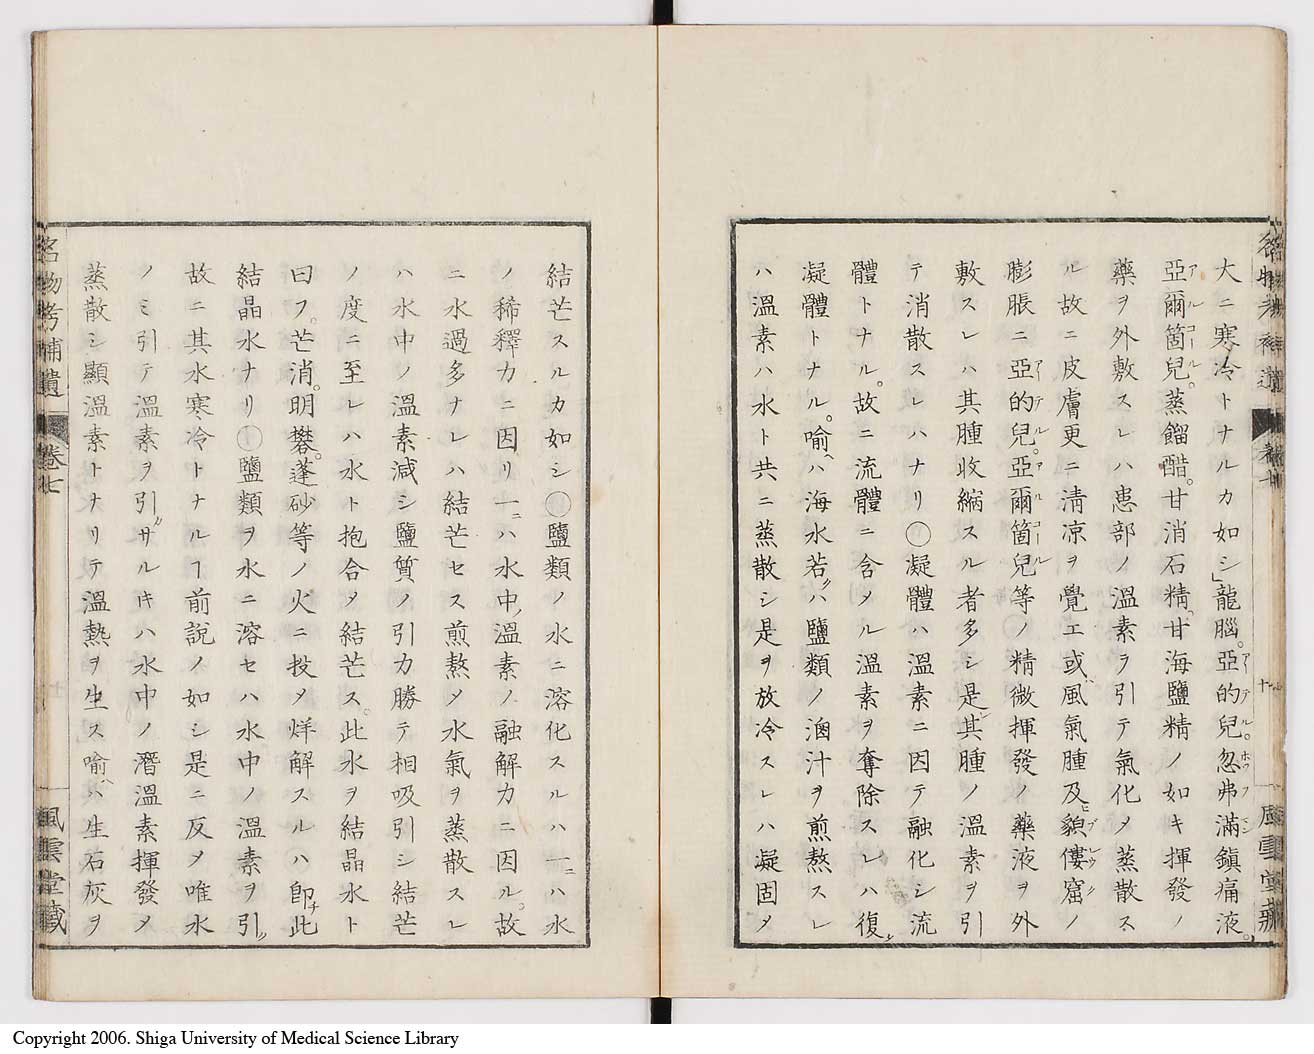 大ニ寒冷トナルカ如シ」龍腦。亞的兒。忽弗滿鎭痛液。
亞爾箇兒。蒸餾醋。甘消石精。甘海鹽精ノ如キ揮發ノ
藥ヲ外敷スレハ患部ノ溫素ヲ引テ氣化メ蒸散ス
ル故ニ皮膚更ニ淸凉ヲ覺エ或ハ風氣腫及ヒ貌僂窟ノ
膨脹ニ亞的兒。亞爾箇兒等ノ精微揮發ノ藥液ヲ外
敷スレハ其腫收縮スル者多シ是レ其腫ノ溫素ヲ引
テ消散スレハナリ○凝體ハ溫素ニ因テ融化シ流
體トナル。故ニ流體ニ含メル溫素ヲ奪除スレハ復タ
凝體トナル。喻ヘハ海水若クハ鹽類ノ滷汁ヲ煎熬スレ
ハ溫素ハ水ト共ニ蒸散シ是ヲ放冷スレハ凝固メ
結芒スルカ如シ○鹽類ノ水ニ溶化スルハ一ニハ水
ノ稀釋力ニ因リ一ニハ水中溫素ノ融解力ニ因ル。故
ニ水過多ナレハ結芒セス煎熬メ水氣ヲ蒸散スレ
ハ水中ノ溫素減シ鹽質ノ引力勝テ相吸引シ結芒
ノ度ニ至レハ水ト抱合メ結芒ス。此水ヲ結晶水ト
曰フ。芒消。明礬。蓬砂等ノ火ニ投メ烊解スルハ卽チ此
結晶水ナリ○鹽類ヲ水ニ溶セハ水中ノ溫素ヲ引ク
故ニ其水寒冷トナルヿ前說ノ如シ是ニ反メ唯水
ノミ引テ溫素ヲ引サルキハ水中ノ潛溫素揮發メ
蒸散シ顯溫素トナリテ溫熱ヲ生ス喻ヘハ生石灰ヲ
名物考補遺 卷七 十 風雲堂藏